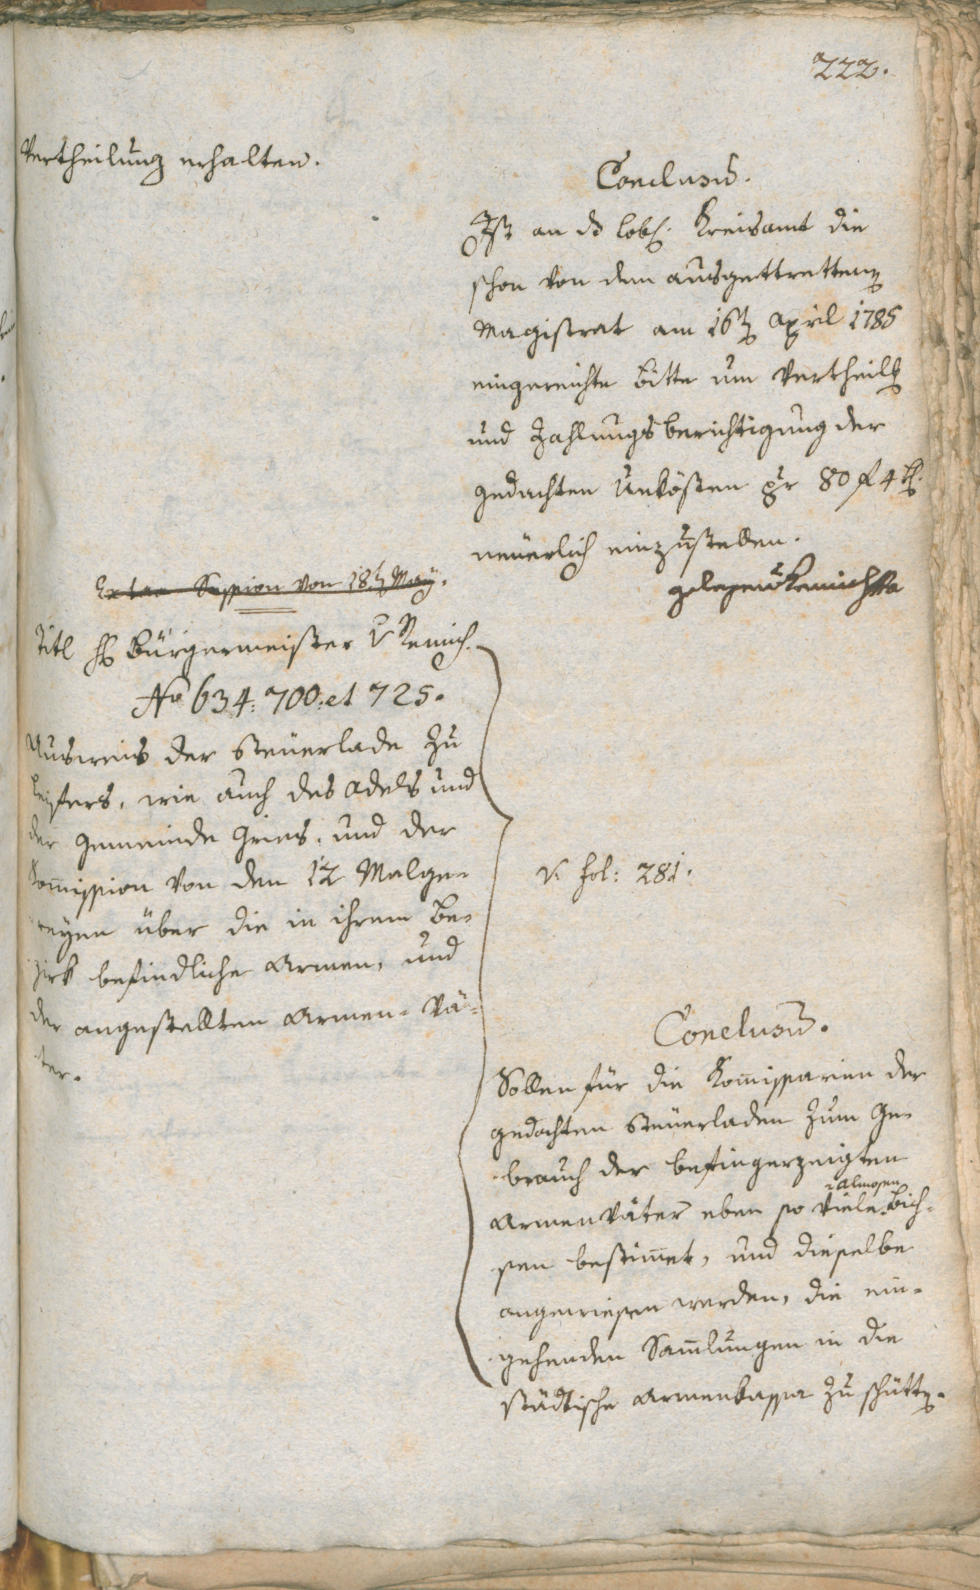 222.
Vertheilung erhalten.
Conclusum.
Ist an d löbl. Kreisamt die
schon von dem ausgettrettenen
Magistrat am 16ten April 1785
eingereichte Bitte um Vertheilg
und Zahlungsberichtigung der
gedachten Unkösten pr 80 f 4 k.
neuerlich einzustellen.
gelesen
Extra Session von 18ten May.
Titl H Bürgermeister v Remich.
No 634: 700: et 725.
Ausweis der Steuerlade zu
Leifers, wie auch des Adels und
der Gemeinde Gries, und der
Kom̄ission von den 12 Malge-
reyen über die in ihrem Be-
zirk befindliche Armen, und
der angestellten Armen-Vä-
ter.
v. fol: 281.
Conclusum.
Sollen für die Kom̄issarien der
gedachten Steuerladen zum Ge-
brauch der befingerzeigten
Armenväter eben so viele Almosen Bich-
sen bestim̄et, und dieselbe
angewiesen werden, die ein-
gehenden Sam̄lungen in die
städtische Armenkassa zu schütten.